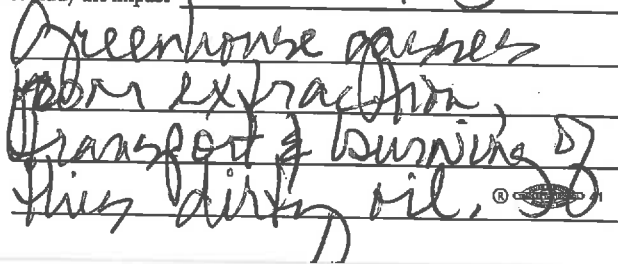 the impact
Greenhouse gasses
from extraction,
transport & burning of
this dirty oil.